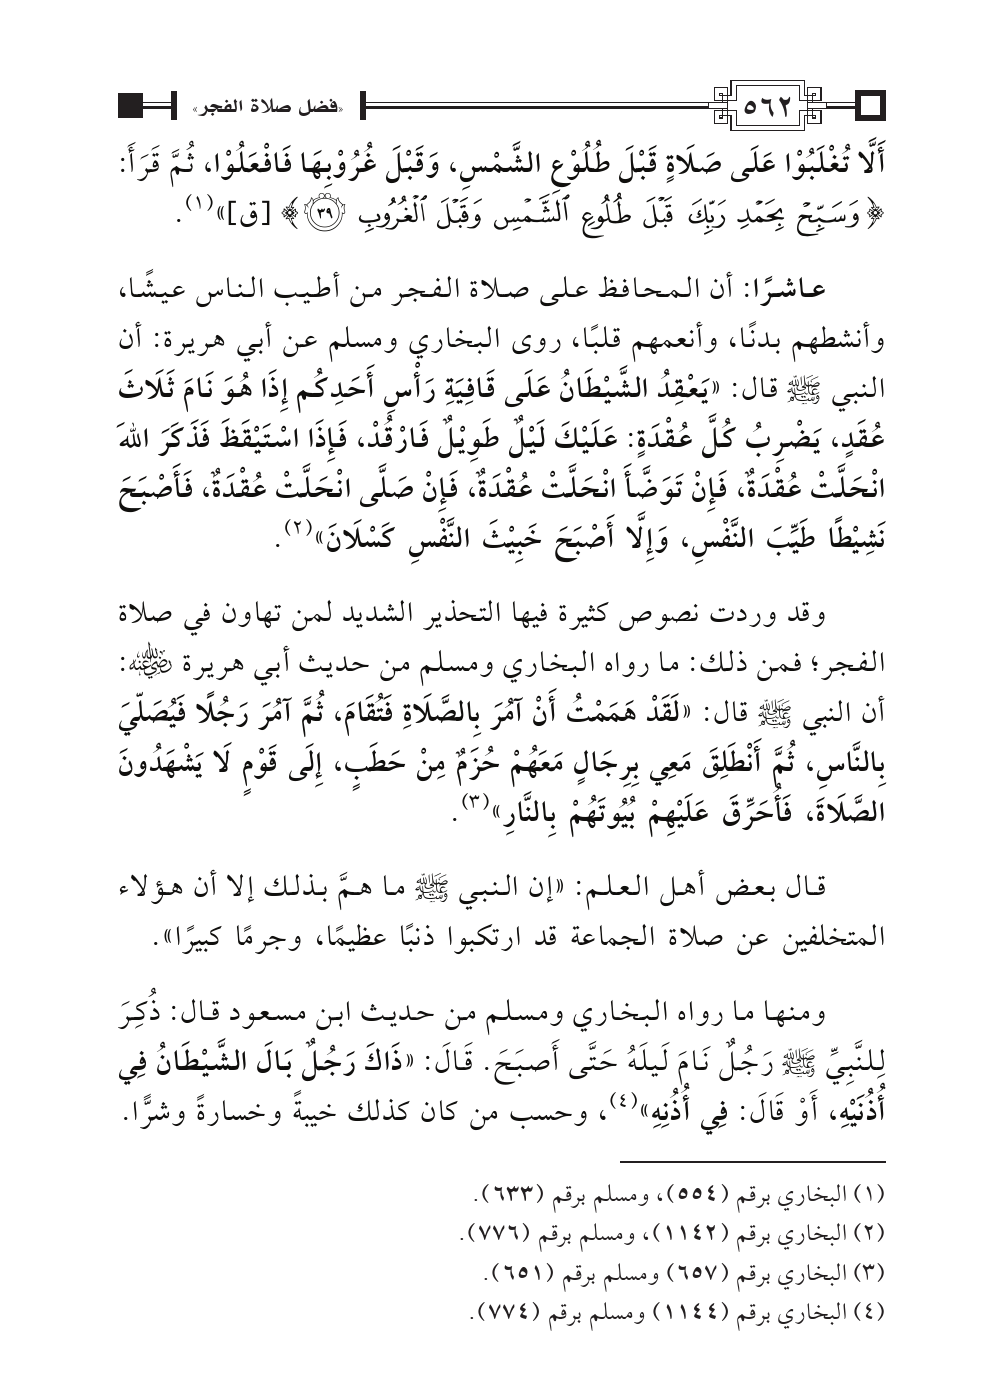 ٥٦٢
«فضل صلاة الفجر»
أَلَّا تُغْلَبُوْا عَلَى صَلَاةٍ قَبْلَ طُلُوْعِ الشَّمْسِ، وَقَبْلَ غُرُوْبِهَا فَافْعَلُوْا، ثُمَّ قَرَأَ:
﴿وَسَبِّحْ بِحَمْدِ رَبِّكَ قَبْلَ طُلُوعِ ٱلشَّمْسِ وَقَبْلَ ٱلْغُرُوبِ ۝٣٩﴾ [ق]»(١).
عاشرًا: أن المحافظ على صلاة الفجر من أطيب الناس عيشًا،
وأنشطهم بدنًا، وأنعمهم قلبًا، روى البخاري ومسلم عن أبي هريرة: أن
النبي ﷺ قال: «يَعْقِدُ الشَّيْطَانُ عَلَى قَافِيَةِ رَأْسِ أَحَدِكُم إِذَا هُوَ نَامَ ثَلَاثَ
عُقَدٍ، يَضْرِبُ كُلَّ عُقْدَةٍ: عَلَيْكَ لَيْلٌ طَوِيْلٌ فَارْقُدْ، فَإِذَا اسْتَيْقَظَ فَذَكَرَ اللهَ
انْحَلَّتْ عُقْدَةٌ، فَإِنْ تَوَضَّأَ انْحَلَّتْ عُقْدَةٌ، فَإِنْ صَلَّى انْحَلَّتْ عُقْدَةٌ، فَأَصْبَحَ
نَشِيْطًا طَيِّبَ النَّفْسِ، وَإِلَّا أَصْبَحَ خَبِيْثَ النَّفْسِ كَسْلَانَ»(٢).
وقد وردت نصوص كثيرة فيها التحذير الشديد لمن تهاون في صلاة
الفجر؛ فمن ذلك: ما رواه البخاري ومسلم من حديث أبي هريرة رضي الله عنه:
أن النبي ﷺ قال: «لَقَدْ هَمَمْتُ أَنْ آمُرَ بِالصَّلَاةِ فَتُقَامَ، ثُمَّ آمُرَ رَجُلًا فَيُصَلِّيَ
بِالنَّاسِ، ثُمَّ أَنْطَلِقَ مَعِي بِرِجَالٍ مَعَهُمْ حُزَمٌ مِنْ حَطَبٍ، إِلَى قَوْمٍ لَا يَشْهَدُونَ
الصَّلَاةَ، فَأُحَرِّقَ عَلَيْهِمْ بُيُوتَهُمْ بِالنَّارِ»(٣).
قال بعض أهل العلم: «إن النبي ﷺ ما همَّ بذلك إلا أن هؤلاء
المتخلفين عن صلاة الجماعة قد ارتكبوا ذنبًا عظيمًا، وجرمًا كبيرًا».
ومنها ما رواه البخاري ومسلم من حديث ابن مسعود قال: ذُكِرَ
لِلنَّبِيِّ ﷺ رَجُلٌ نَامَ لَيلَهُ حَتَّى أَصبَحَ. قَالَ: «ذَاكَ رَجُلٌ بَالَ الشَّيْطَانُ فِي
أُذُنَيْهِ، أَوْ قَالَ: فِي أُذُنِهِ»(٤)، وحسب من كان كذلك خيبةً وخسارةً وشرًّا.
(١) البخاري برقم (٥٥٤)، ومسلم برقم (٦٣٣).
(٢) البخاري برقم (١١٤٢)، ومسلم برقم (٧٧٦).
(٣) البخاري برقم (٦٥٧) ومسلم برقم (٦٥١).
(٤) البخاري برقم (١١٤٤) ومسلم برقم (٧٧٤).